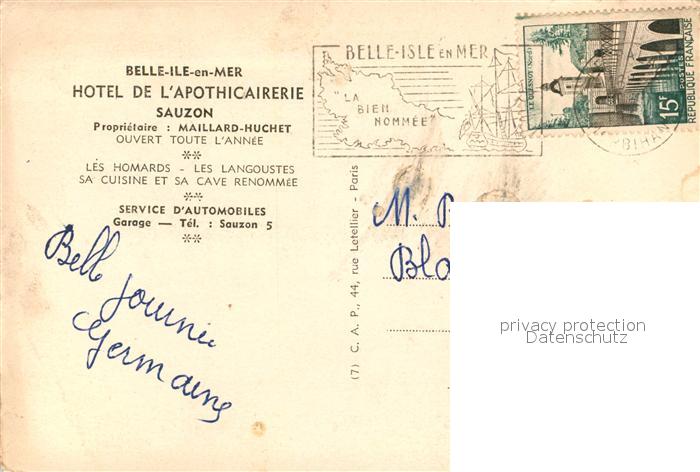 BELLE-ILE-en-MER
HOTEL DE L'APOTHICAIRERIE
SAUZON
Propriétaire : MAILLARD-HUCHET
OUVERT TOUTE L'ANNÉE
LES HOMARDS - LES LANGOUSTES
SA CUISINE ET SA CAVE RENOMMÉE
SERVICE D'AUTOMOBILES
Garage — Tél. : Sauzon 5
Belle journée
Germaine
(7) C. A. P., 44, rue Letellier - Paris
BELLE-ISLE EN MER
"LA
BIEN
NOMMÉE"
LE QUESNOY (Nord)
15F
POSTES
REPUBLIQUE FRANÇAISE
BIHAN
M.
privacy protection
Datenschutz